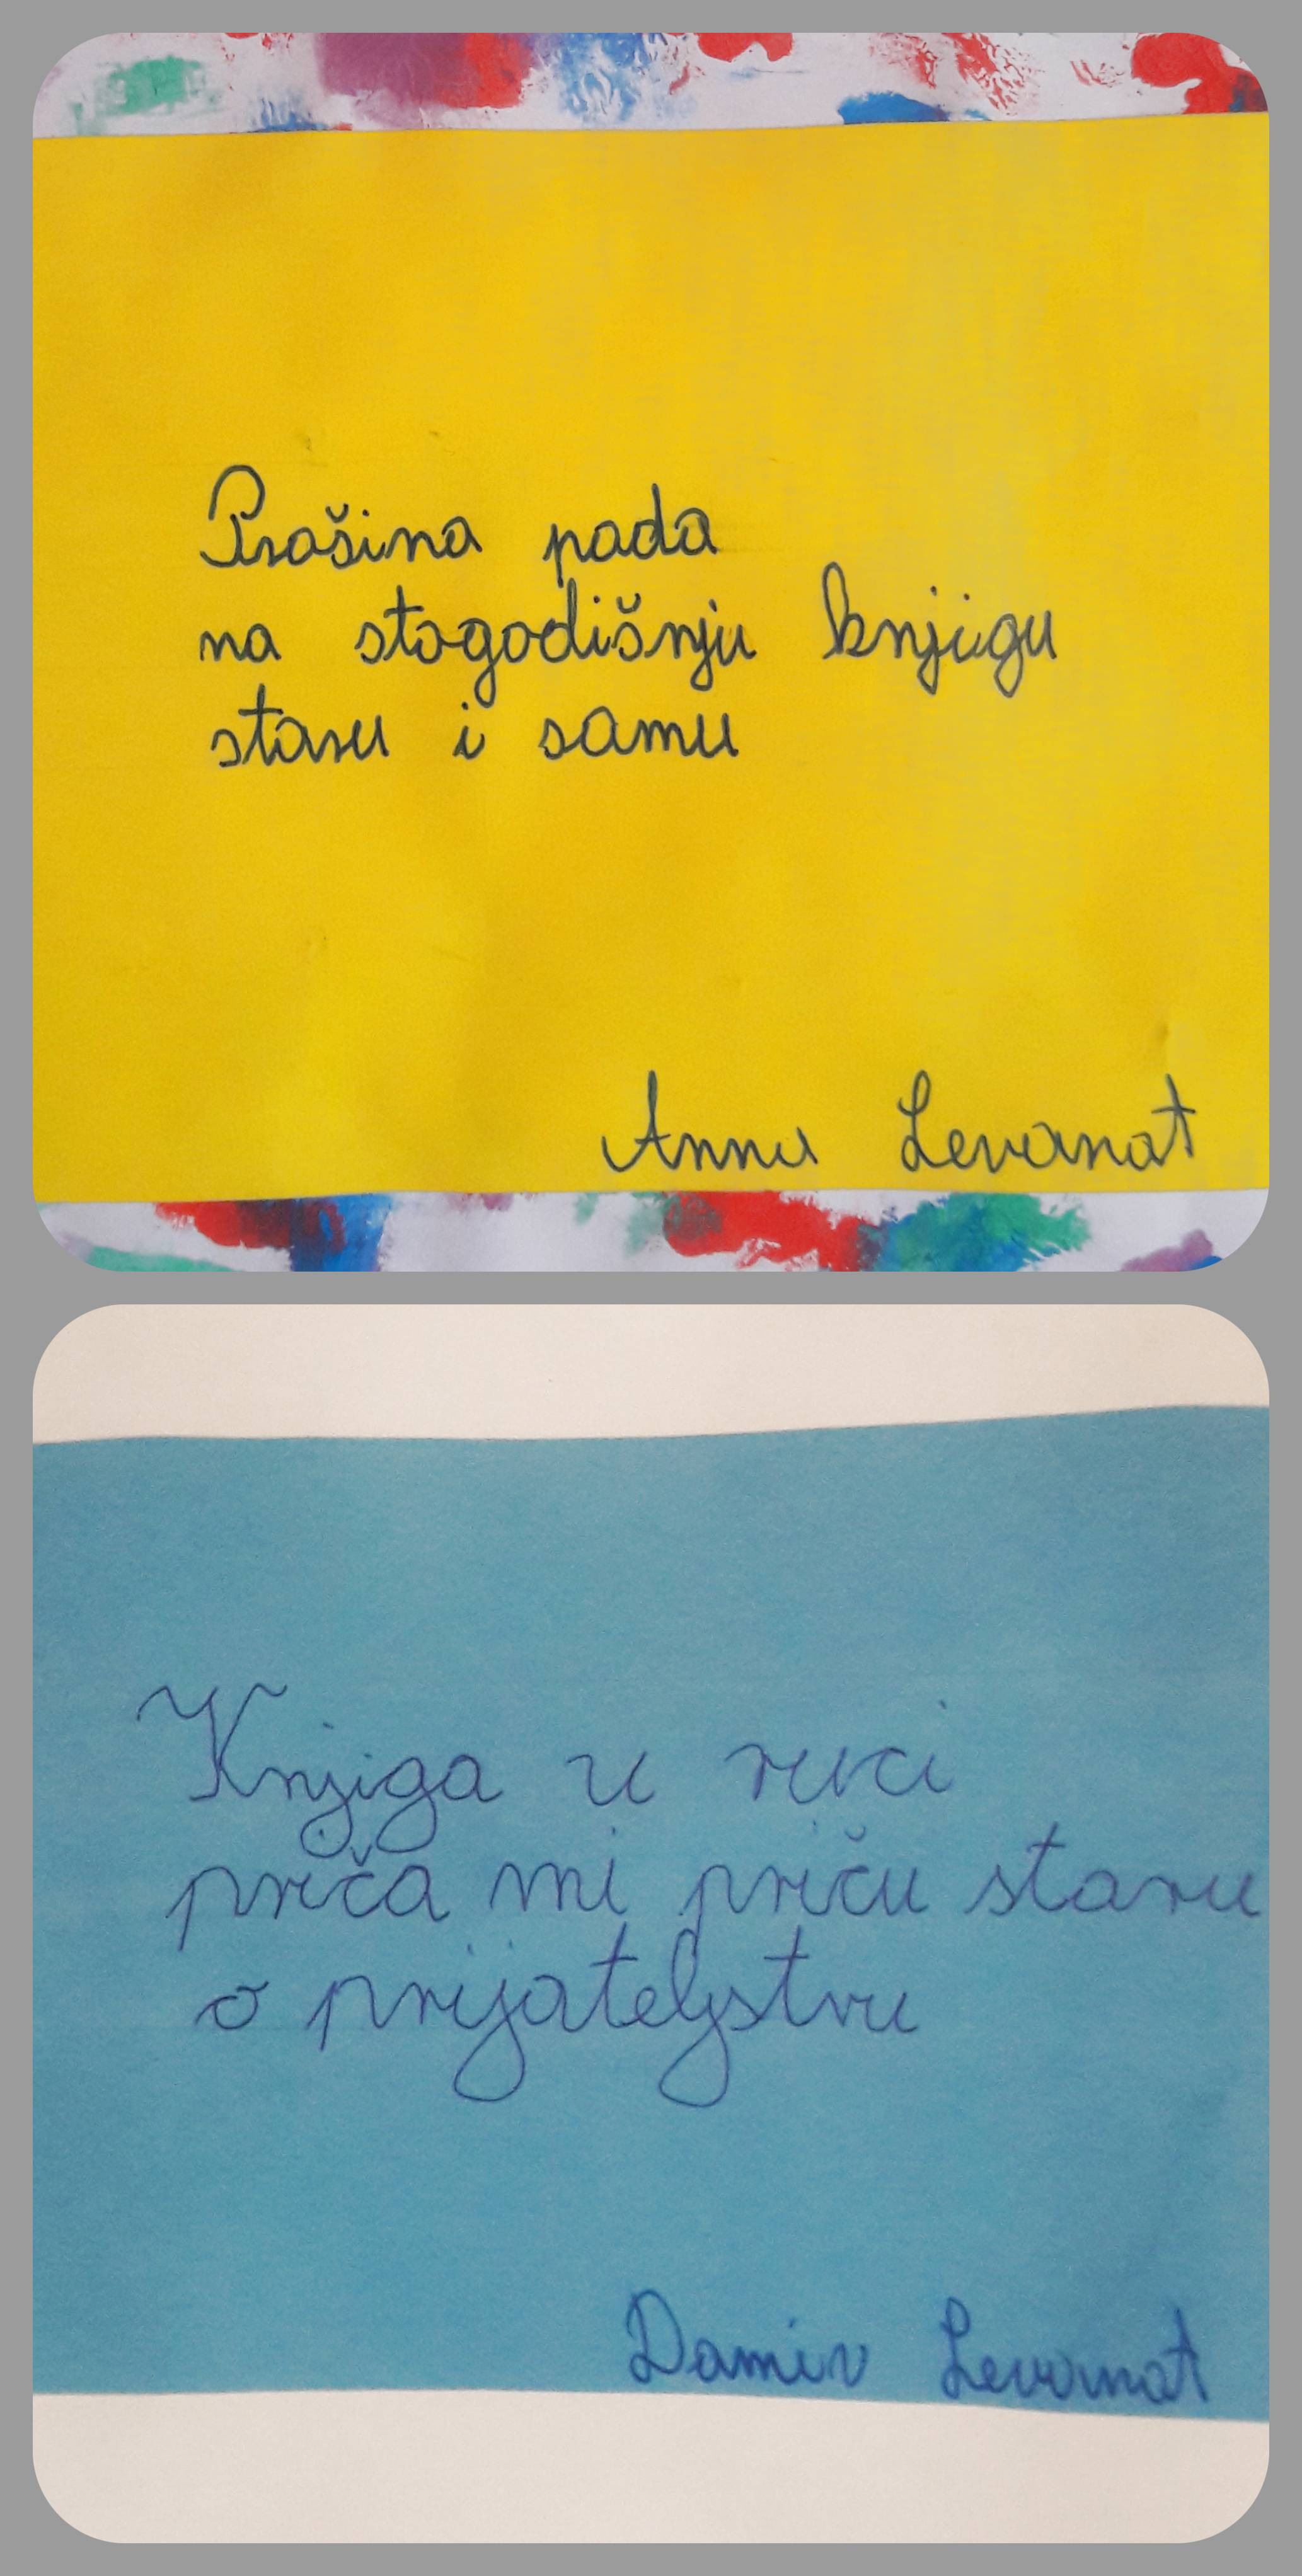 Prašina pada
na stogodišnju knjigu
staru i samu
Anna Levanat
Knjiga u ruci
priča mi priču staru
o prijateljstvu
Damir Levanat